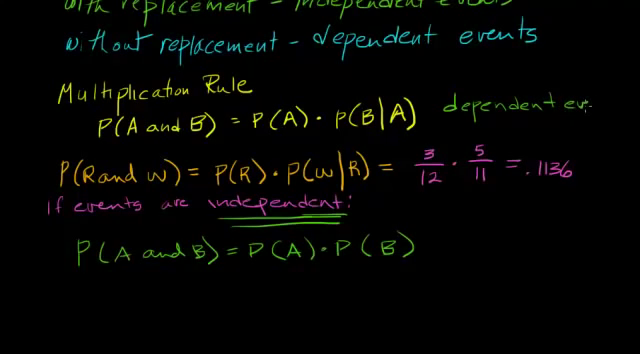 with replacement - independent events
without replacement - dependent events
Multiplication Rule
P(A and B) = P(A) · P(B|A) dependent eve
P(R and W) = P(R) · P(W|R) = 3/12 · 5/11 = .1136
If events are independent:
P(A and B) = P(A) · P(B)